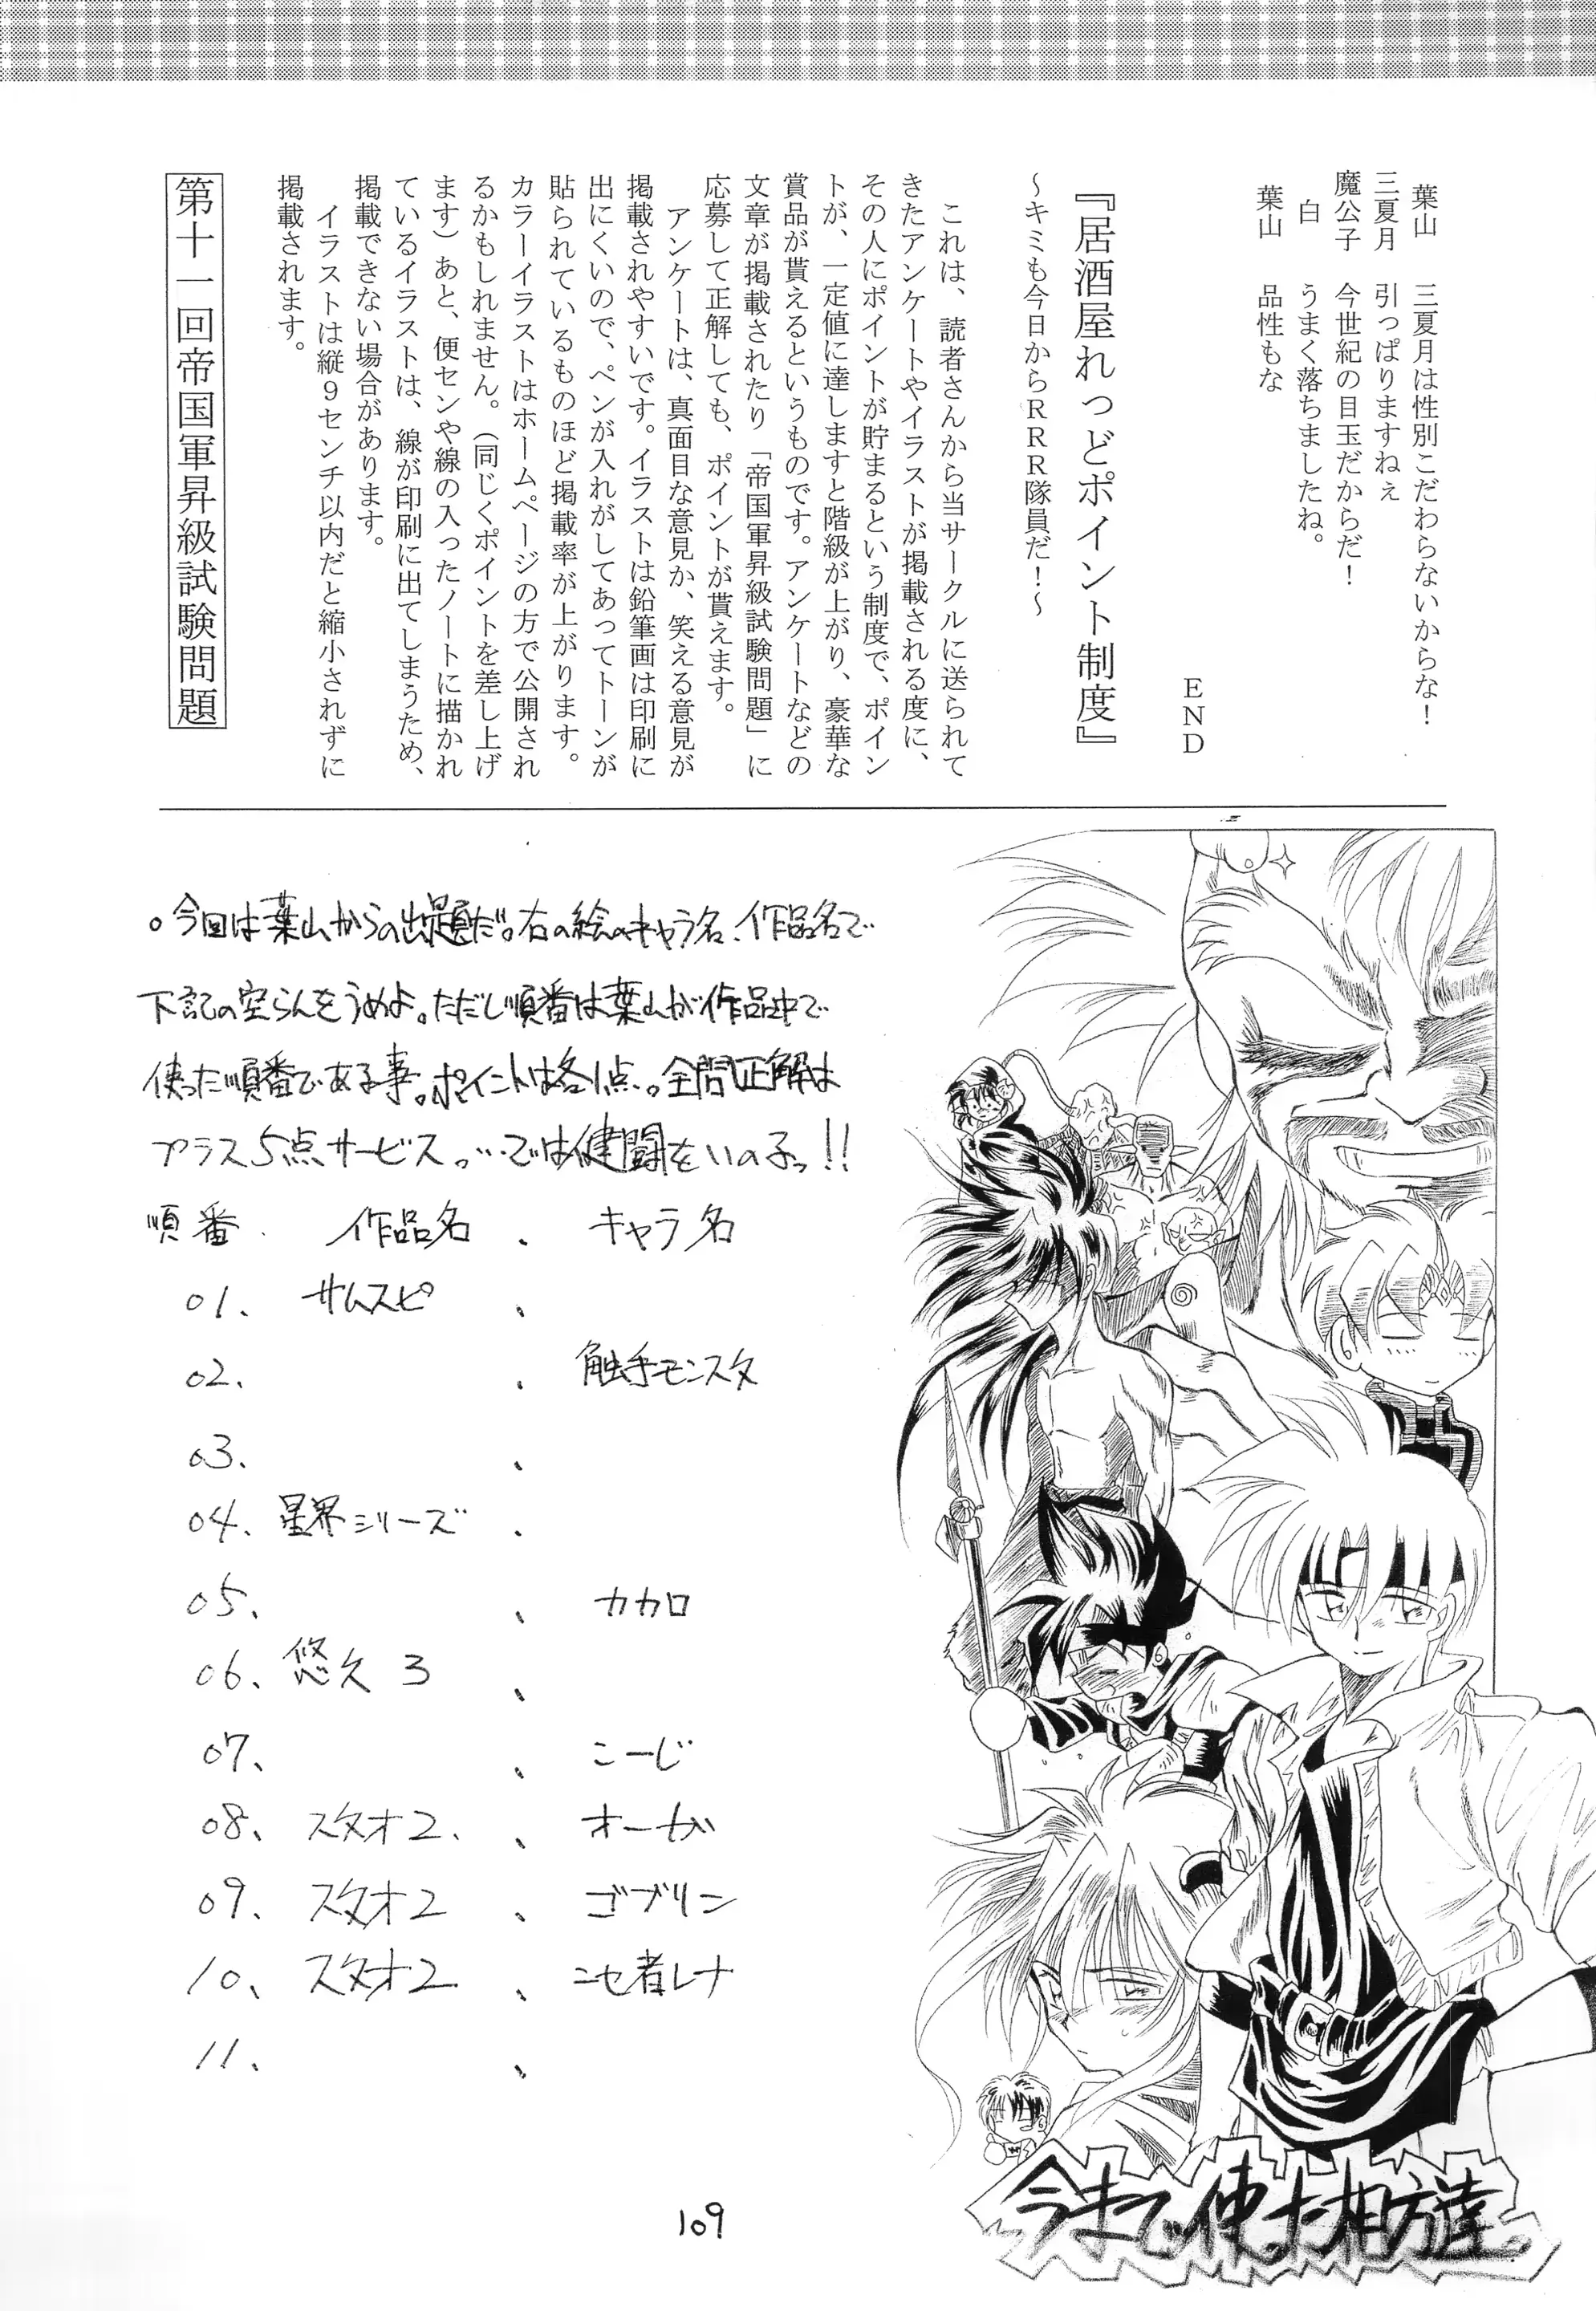 葉山　三夏月は性別こだわらないからな！
三夏月　引っぱりますねぇ
魔公子　今世紀の目玉だからだ！
白　うまく落ちましたね。
葉山　品性もな
END
『居酒屋れっどポイント制度』
～キミも今日からＲＲＲ隊員だ！～
これは、読者さんから当サークルに送られて
きたアンケートやイラストが掲載される度に、
その人にポイントが貯まるという制度で、ポイン
トが、一定値に達しますと階級が上がり、豪華な
賞品が貰えるというものです。アンケートなどの
文章が掲載されたり「帝国軍昇級試験問題」に
応募して正解しても、ポイントが貰えます。
アンケートは、真面目な意見か、笑える意見が
掲載されやすいです。イラストは鉛筆画は印刷に
出にくいので、ペンが入れがしてあってトーンが
貼られているものほど掲載率が上がります。
カラーイラストはホームページの方で公開され
るかもしれません。（同じくポイントを差し上げ
ます）あと、便センや線の入ったノートに描かれ
ているイラストは、線が印刷に出てしまうため、
掲載できない場合があります。
イラストは縦９センチ以内だと縮小されずに
掲載されます。
第十一回帝国軍昇級試験問題
。今回は葉山からの出題だ。右の絵のキャラ名、作品名で
下記の空らんをうめよ。ただし順番は葉山が作品中で
使った順番である事。ポイントは各1点。全問正解は
プラス5点サービス。…では健闘をいのるっ!!
順番　作品名　、　キャラ名
01、　サムスピ　、
02、　、　触手モンスタ
03、　、
04、星界シリーズ　、
05、　、　カカロ
06、悠久3　、
07、　、　こーじ
08、　スタオ2、　、　オーガ
09、　スタオ2　、　ゴブリン
10、　スタオ2　、　ニセ者レナ
11、　、
今まで使った相方達。
109